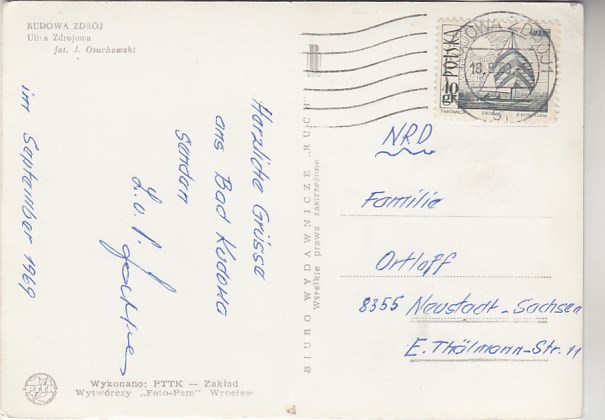 KUDOWA ZDRÓJ
Ulica Zdrojowa
fot. J. Osuchowski
im September 1969
Herzliche Grüsse
aus Bad Kudowa
senden
Wykonano: PTTK — Zakład
Wytwórczy „Foto-Pam" Wrocław
BIURO WYDAWNICZE „RUCH"
Wszelkie prawa zastrzeżone
POLSKA
10 gr
NRD
Familie
Ortloff
8355 Neustadt-Sachsen
E. Thälmann-Str. 11